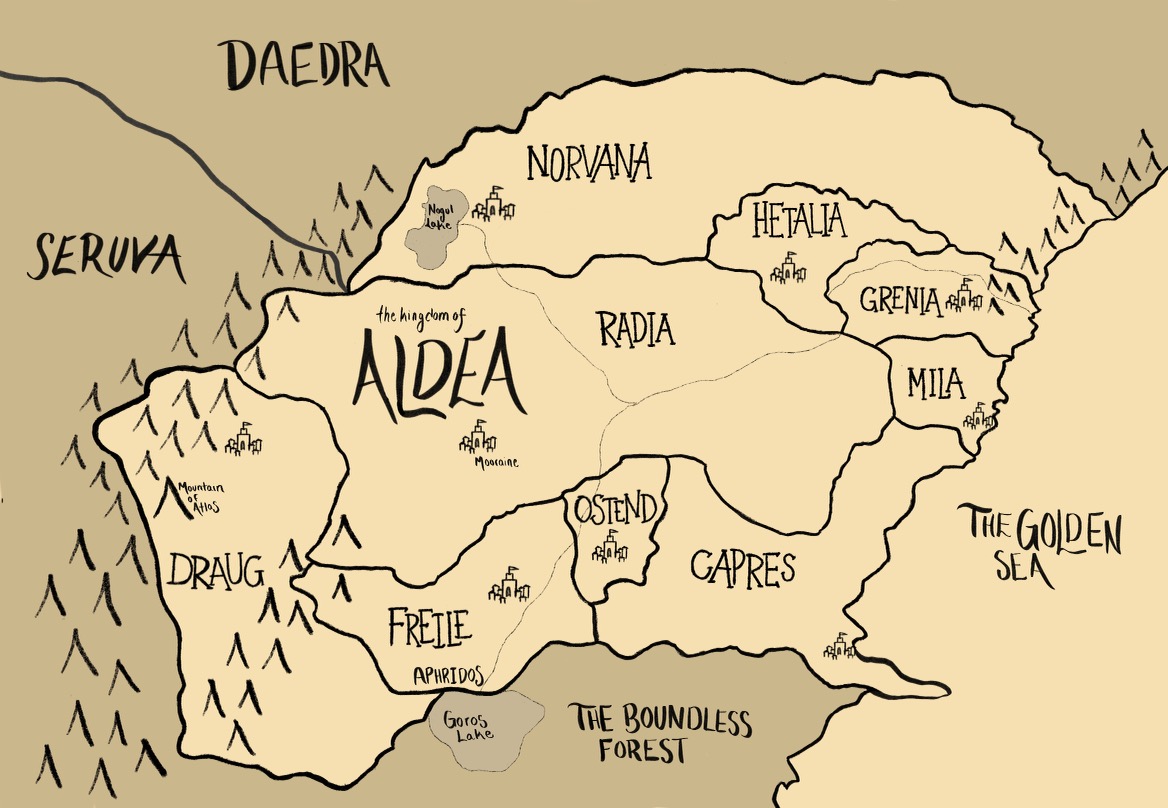 DAEDRA
NORVANA
Nogul
Lake
HETALIA
SERUVA
GRENIA
the kingdom of
ALDEA
RADIA
MILA
Mooraine
Mountain
of
Atlas
OSTEND
THE GOLDEN
SEA
DRAUG
CAPRES
FREILE
APHRIDOS
Goros
Lake
THE BOUNDLESS
FOREST